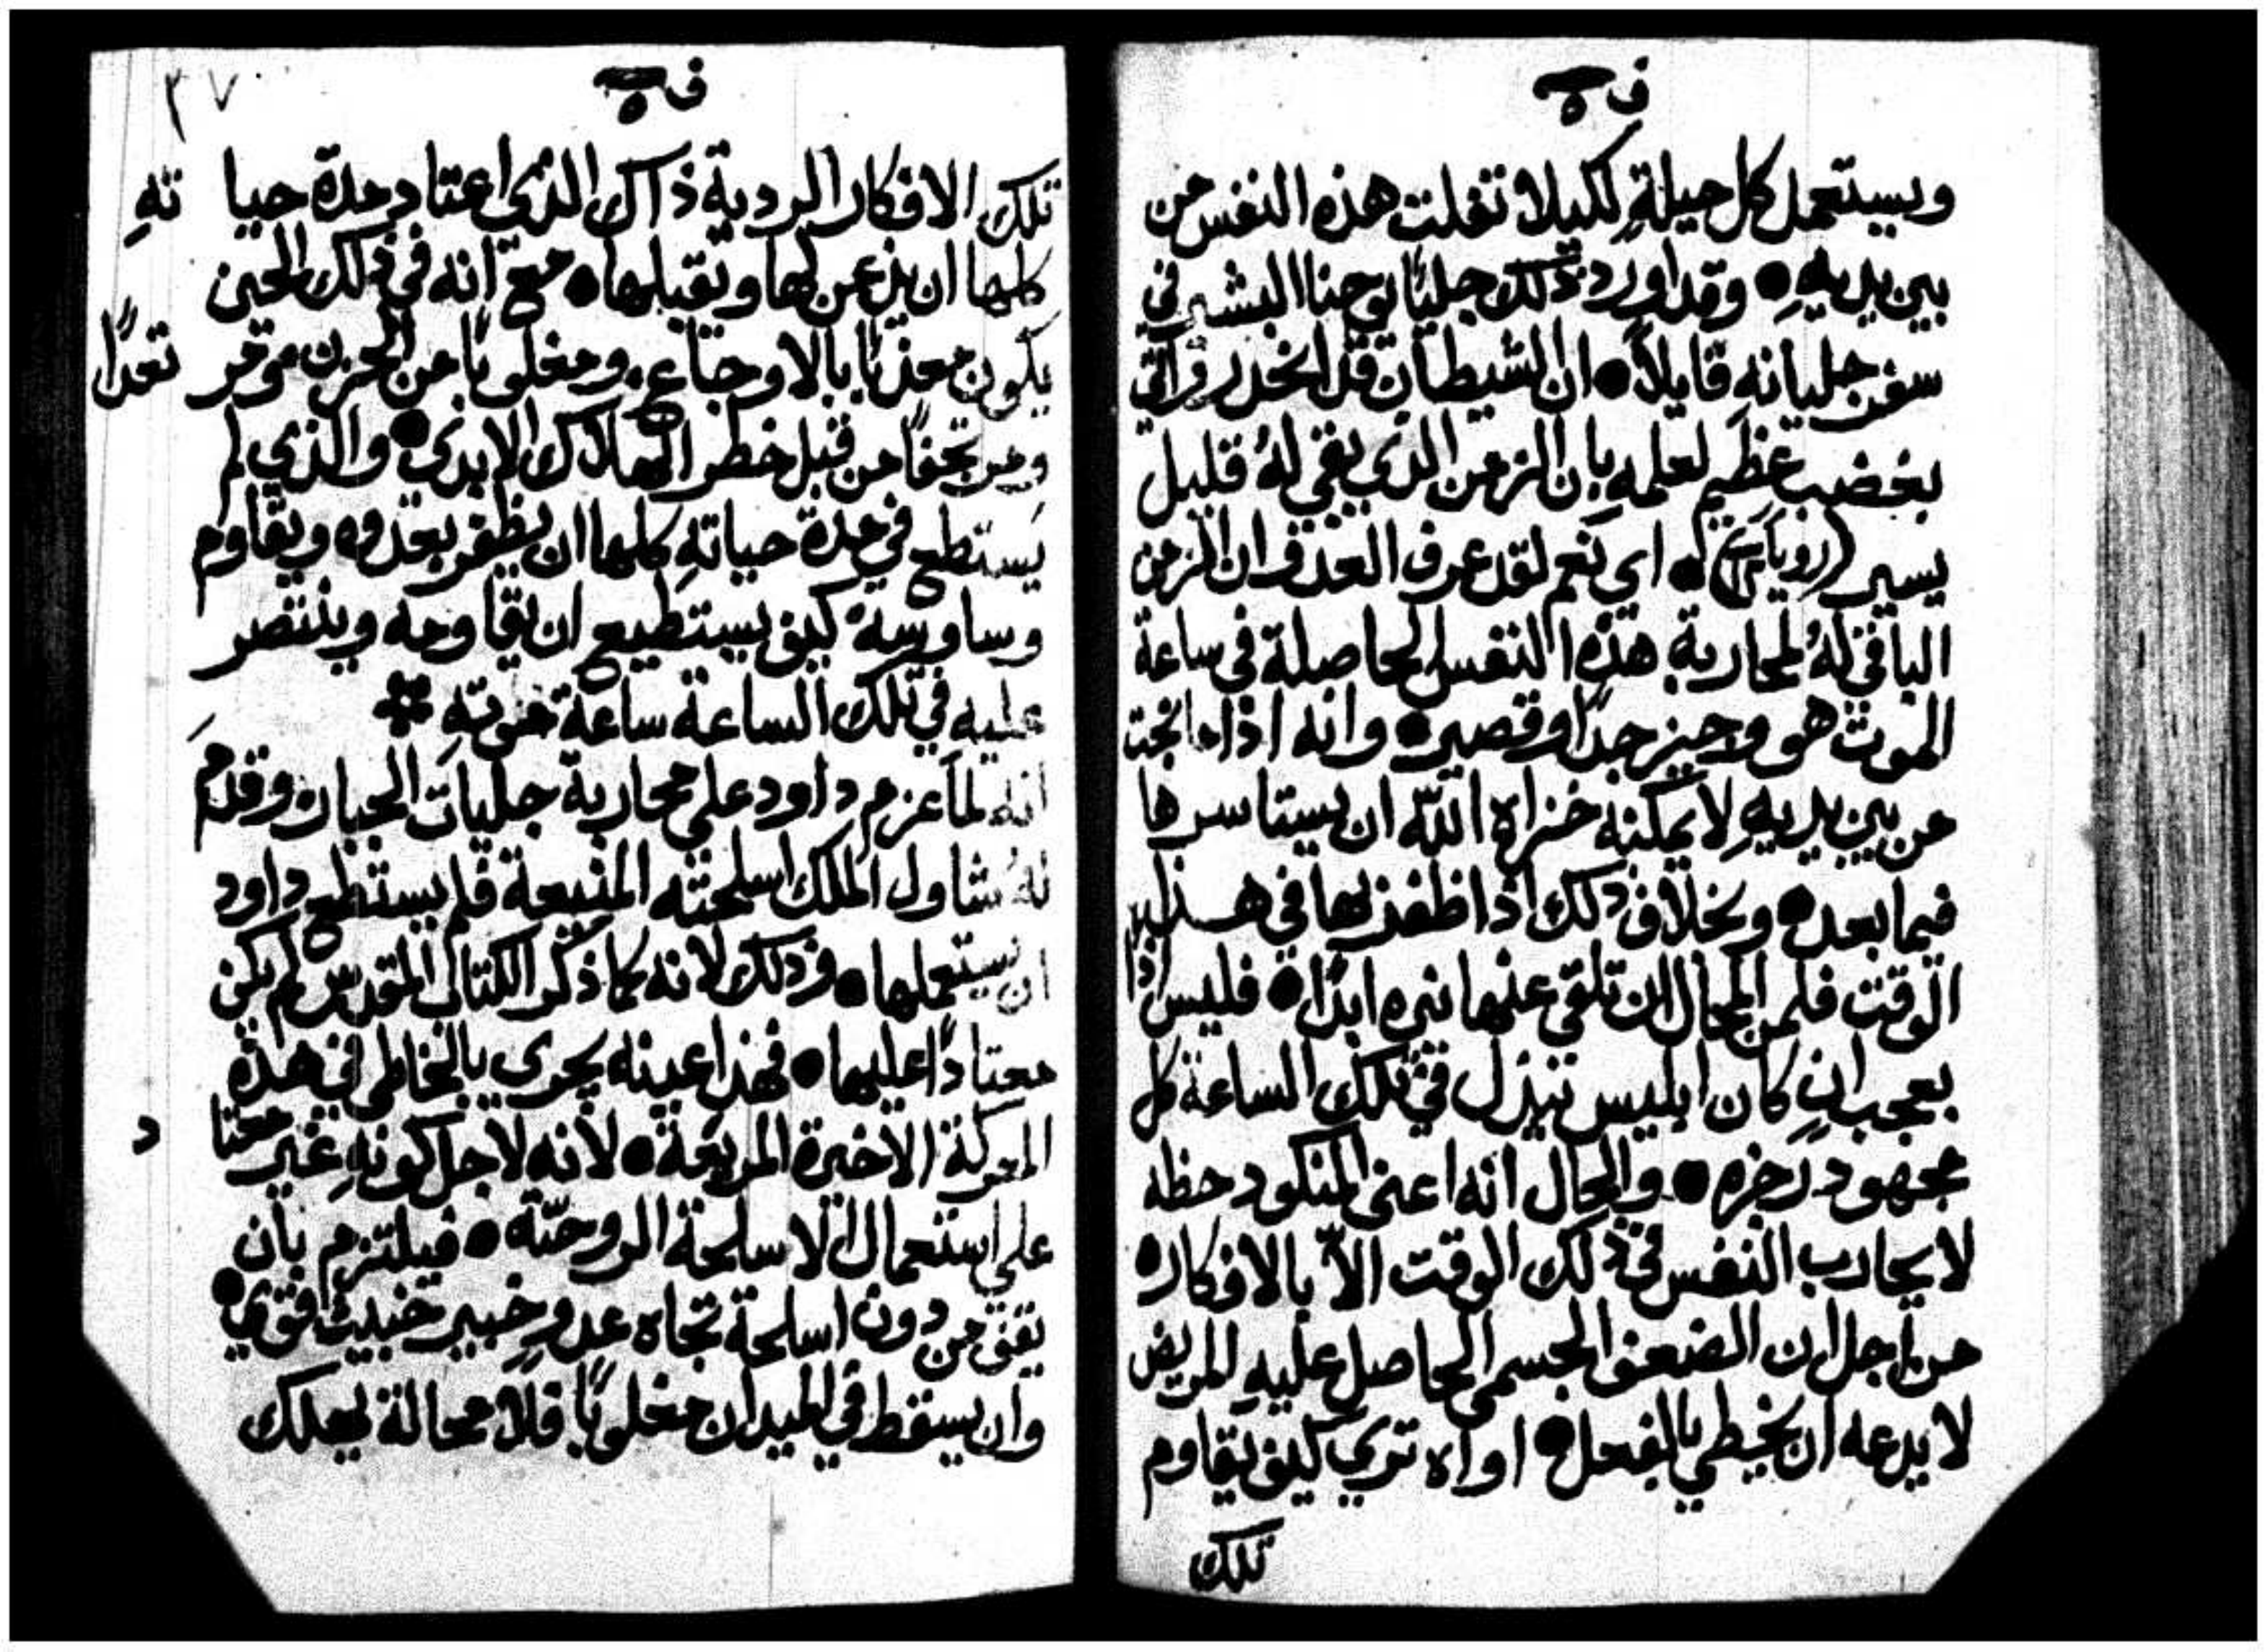 ف ٥
ويستعمل كل حيلةٍ لكيلا تفلت هذه النفس من
بين يديهِ • وقد اورد ذلك جلياً يوحنا البشير في
سفر جليانه قايلاً • ان الشيطان قد انحدر
بغضب عظيم لعلمه بان الزمن الذي بقي لهُ قليل
يسير (رويا) • اي نعم لقد عرف العدو ان الزمن
الباقي لهُ لمحاربة هذه النفس الحاصلة في ساعة
الموت هو وجيز جداً وقصير • وانه اذا ما نجت
من بين يديهِ لا يمكنه خزاه الله ان يستاسرها
فيما بعد • وبخلاف ذلك اذا ظفر بها في هذا
الوقت فلمن المحال ان تلقي عنها نيره ابداً • فليس اذاً
بعجب ان كان ابليس يبذل في تلك الساعة كل
مجهود زخره • والحال انه اعني المنكود حظه
لا يحارب النفس في ذلك الوقت الاّ بالافكار •
من اجل ان الضعف الجسمي الحاصل عليهِ المريض
لا يدعه ان يخيطي بالفعل • اواه تري كيف يقاوم
تلك
ف ٥
٣٧
تلك الافكار الردية ذاك الذي اعتاد مدة حياتهِ
كلها ان يذعن لها ويقبلها • مع انه في ذلك الحين
يكون معذباً بالاوجاع • ومغلوباً من الحزن موقر تعداً
ومرتجفاً من قبل خطر الهلاك الابدي • والذي لم
يستطع في مدة حياتهِ كلها ان يظفر بعدوه ويقاوم
وساوسه كيف يستطيع ان يقاومه وينتصر
عليه في تلك الساعة ساعة موته ܀
انه لما عزم داود على محاربة جليات الجبار وقدم
لهُ شاول الملك اسلحته المنيعة فلم يستطع داود
ان يستعملها • وذلك لانه كما ذكر الكتاب المقدس لم يكن
معتاداً عليها • فهذا عينه يجري بالخاطي في هذه
المعركة الاخيرة المريعة • لانه لاجل كونهِ غير معتاد
على استعمال الاسلحة الروحيّة • فيلتزم بان
يقف من دون اسلحة تجاه عدوٍ خبير خبيث قوي •
وان يسقط في الميدان مغلوباً فلا محالة يهلك